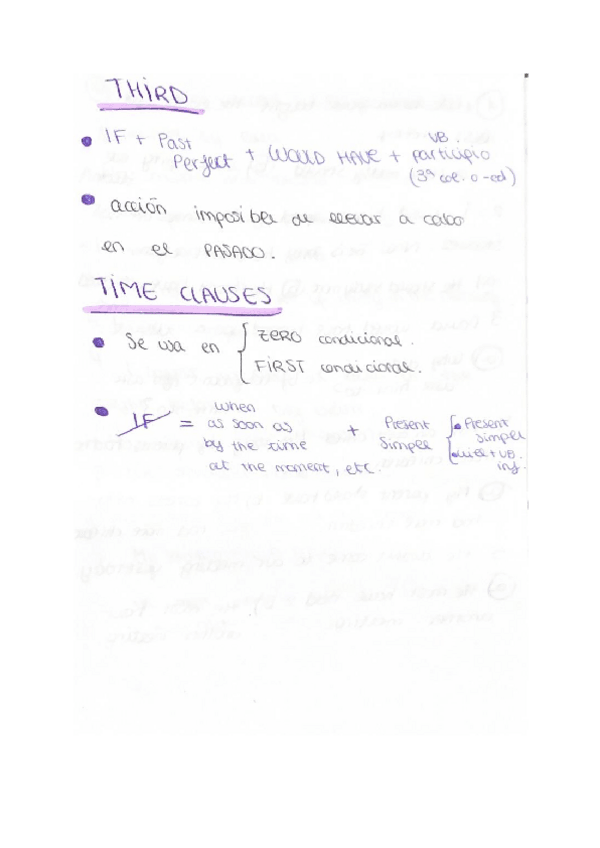 THIRD
• IF + Past Perfect + WOULD HAVE + VB. participio
(3ª col. o -ed)
• acción imposible de llevar a cabo
en el PASADO.
TIME CLAUSES
• Se usa en { ZERO condicional.
FIRST condicional.
• IF = when
as soon as
by the time
at the moment, etc.
+ Present Simple { • Present Simple
• will + VB. inf.